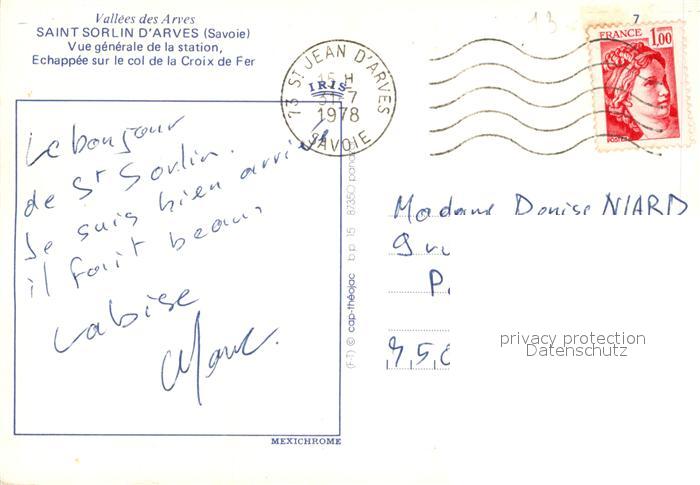 Vallées des Arves
SAINT SORLIN D'ARVES (Savoie)
Vue générale de la station,
Echappée sur le col de la Croix de Fer
13
7
FRANCE 1,00
POSTES
73 ST JEAN D'ARVES
15 H
31-7
1978
SAVOIE
IRIS
Le bonjour
de St Sorlin.
Je suis bien arrivé
il fait beau,
La bise
Marc.
Madame Denise NIARD
9 ru
P.
7,5,0
privacy protection
Datenschutz
(F-T) © cap-théojac b.p. 15 87350 panazol
MEXICHROME